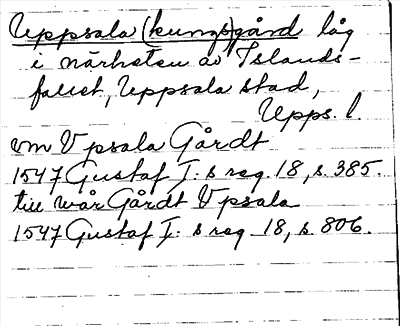 Uppsala (kungs)gård låg
i närheten av Islands-
fallet, Uppsala stad,
Upps. l.
om Vpsala Gårdt
1547 Gustaf I:s reg. 18, s. 385.
till wår Gårdt Vpsala
1547 Gustaf I:s reg. 18, s. 806.